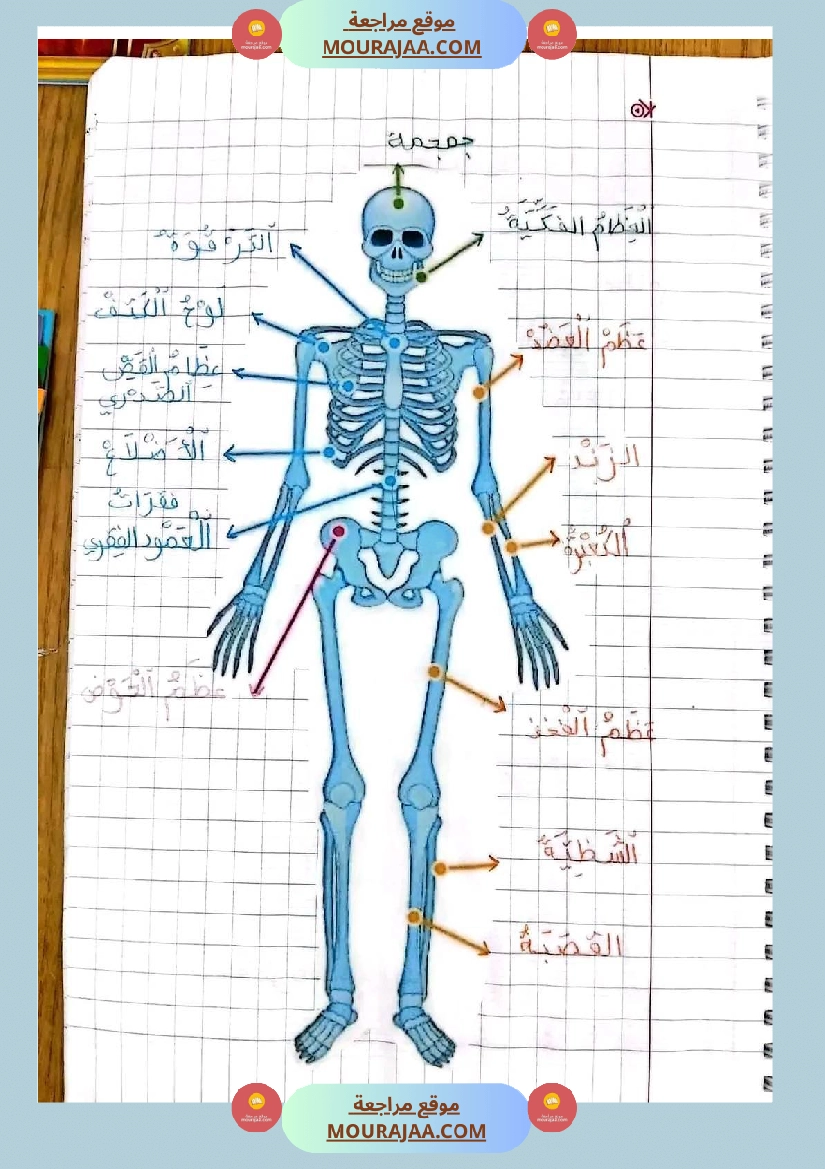 موقع مراجعة
MOURAJAA.COM
جمجمة
الْعِظَامُ الفَكِّيَّةُ
اَلتَّرْقُوَةُ
لَوْحُ اَلْكَتِفْ
عَظْمُ اَلْعَضُدْ
عِظَامُ القَفَصْ
الصَّدْرِي
اَلْأَضْلَاعْ
الزَنْدْ
فَقَرَاتُ
اَلْعَمُود الفِقَرِي
اَلكُعْبُرَةُ
عَظْمُ اَلْحَوْض
عَظْمُ اَلْفَخذ
اَلشَّظِيَّةُ
القَصَبَةُ
موقع مراجعة
MOURAJAA.COM